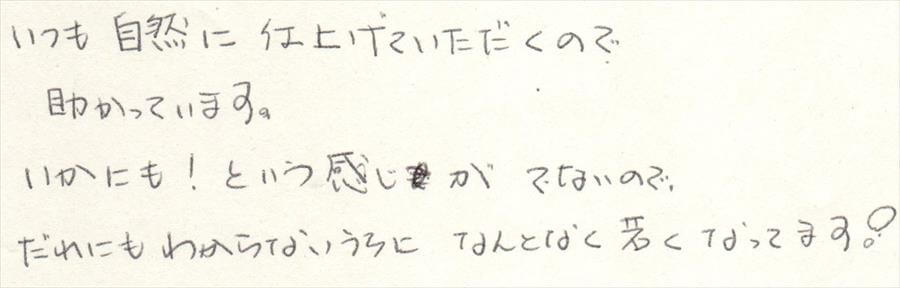 いつも 自然に 仕上げていただくので
助かっています。
いかにも！という感じが でないので、
だれにもわからないうちに なんとなく若くなってます？